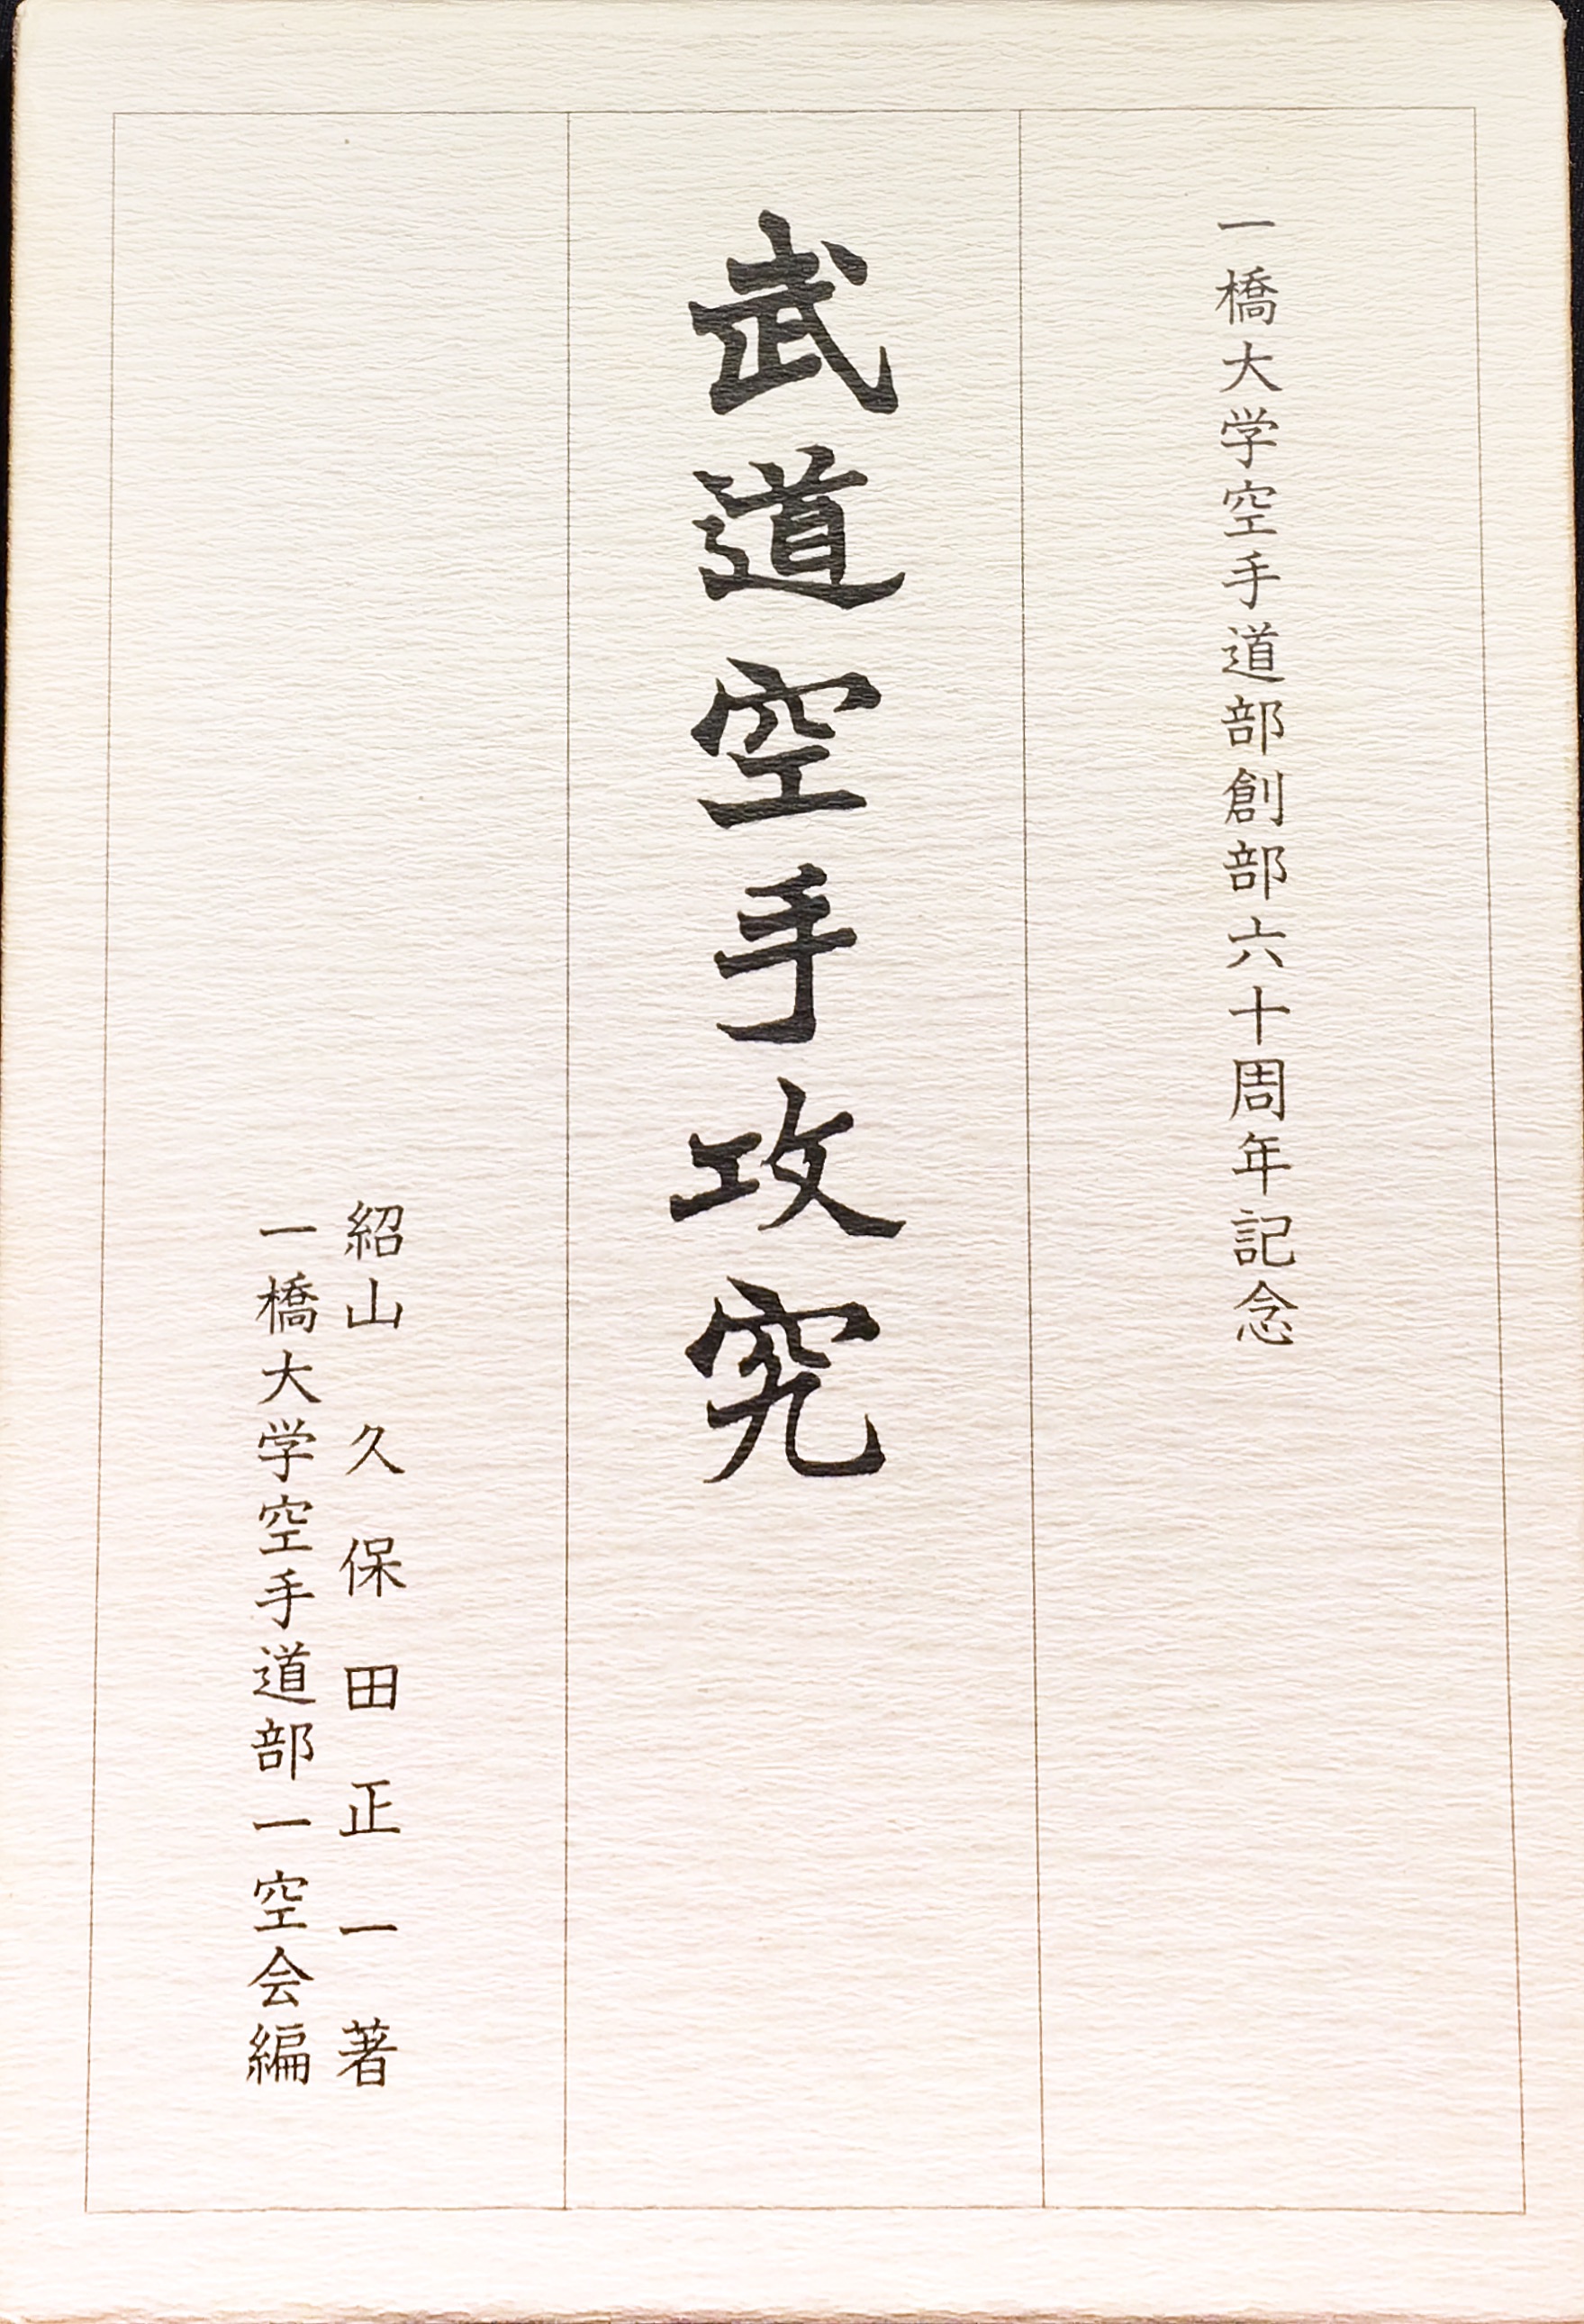 一橋大学空手道部創部六十周年記念
武道空手攻究
紹山 久保田正一著
一橋大学空手道部一空会編